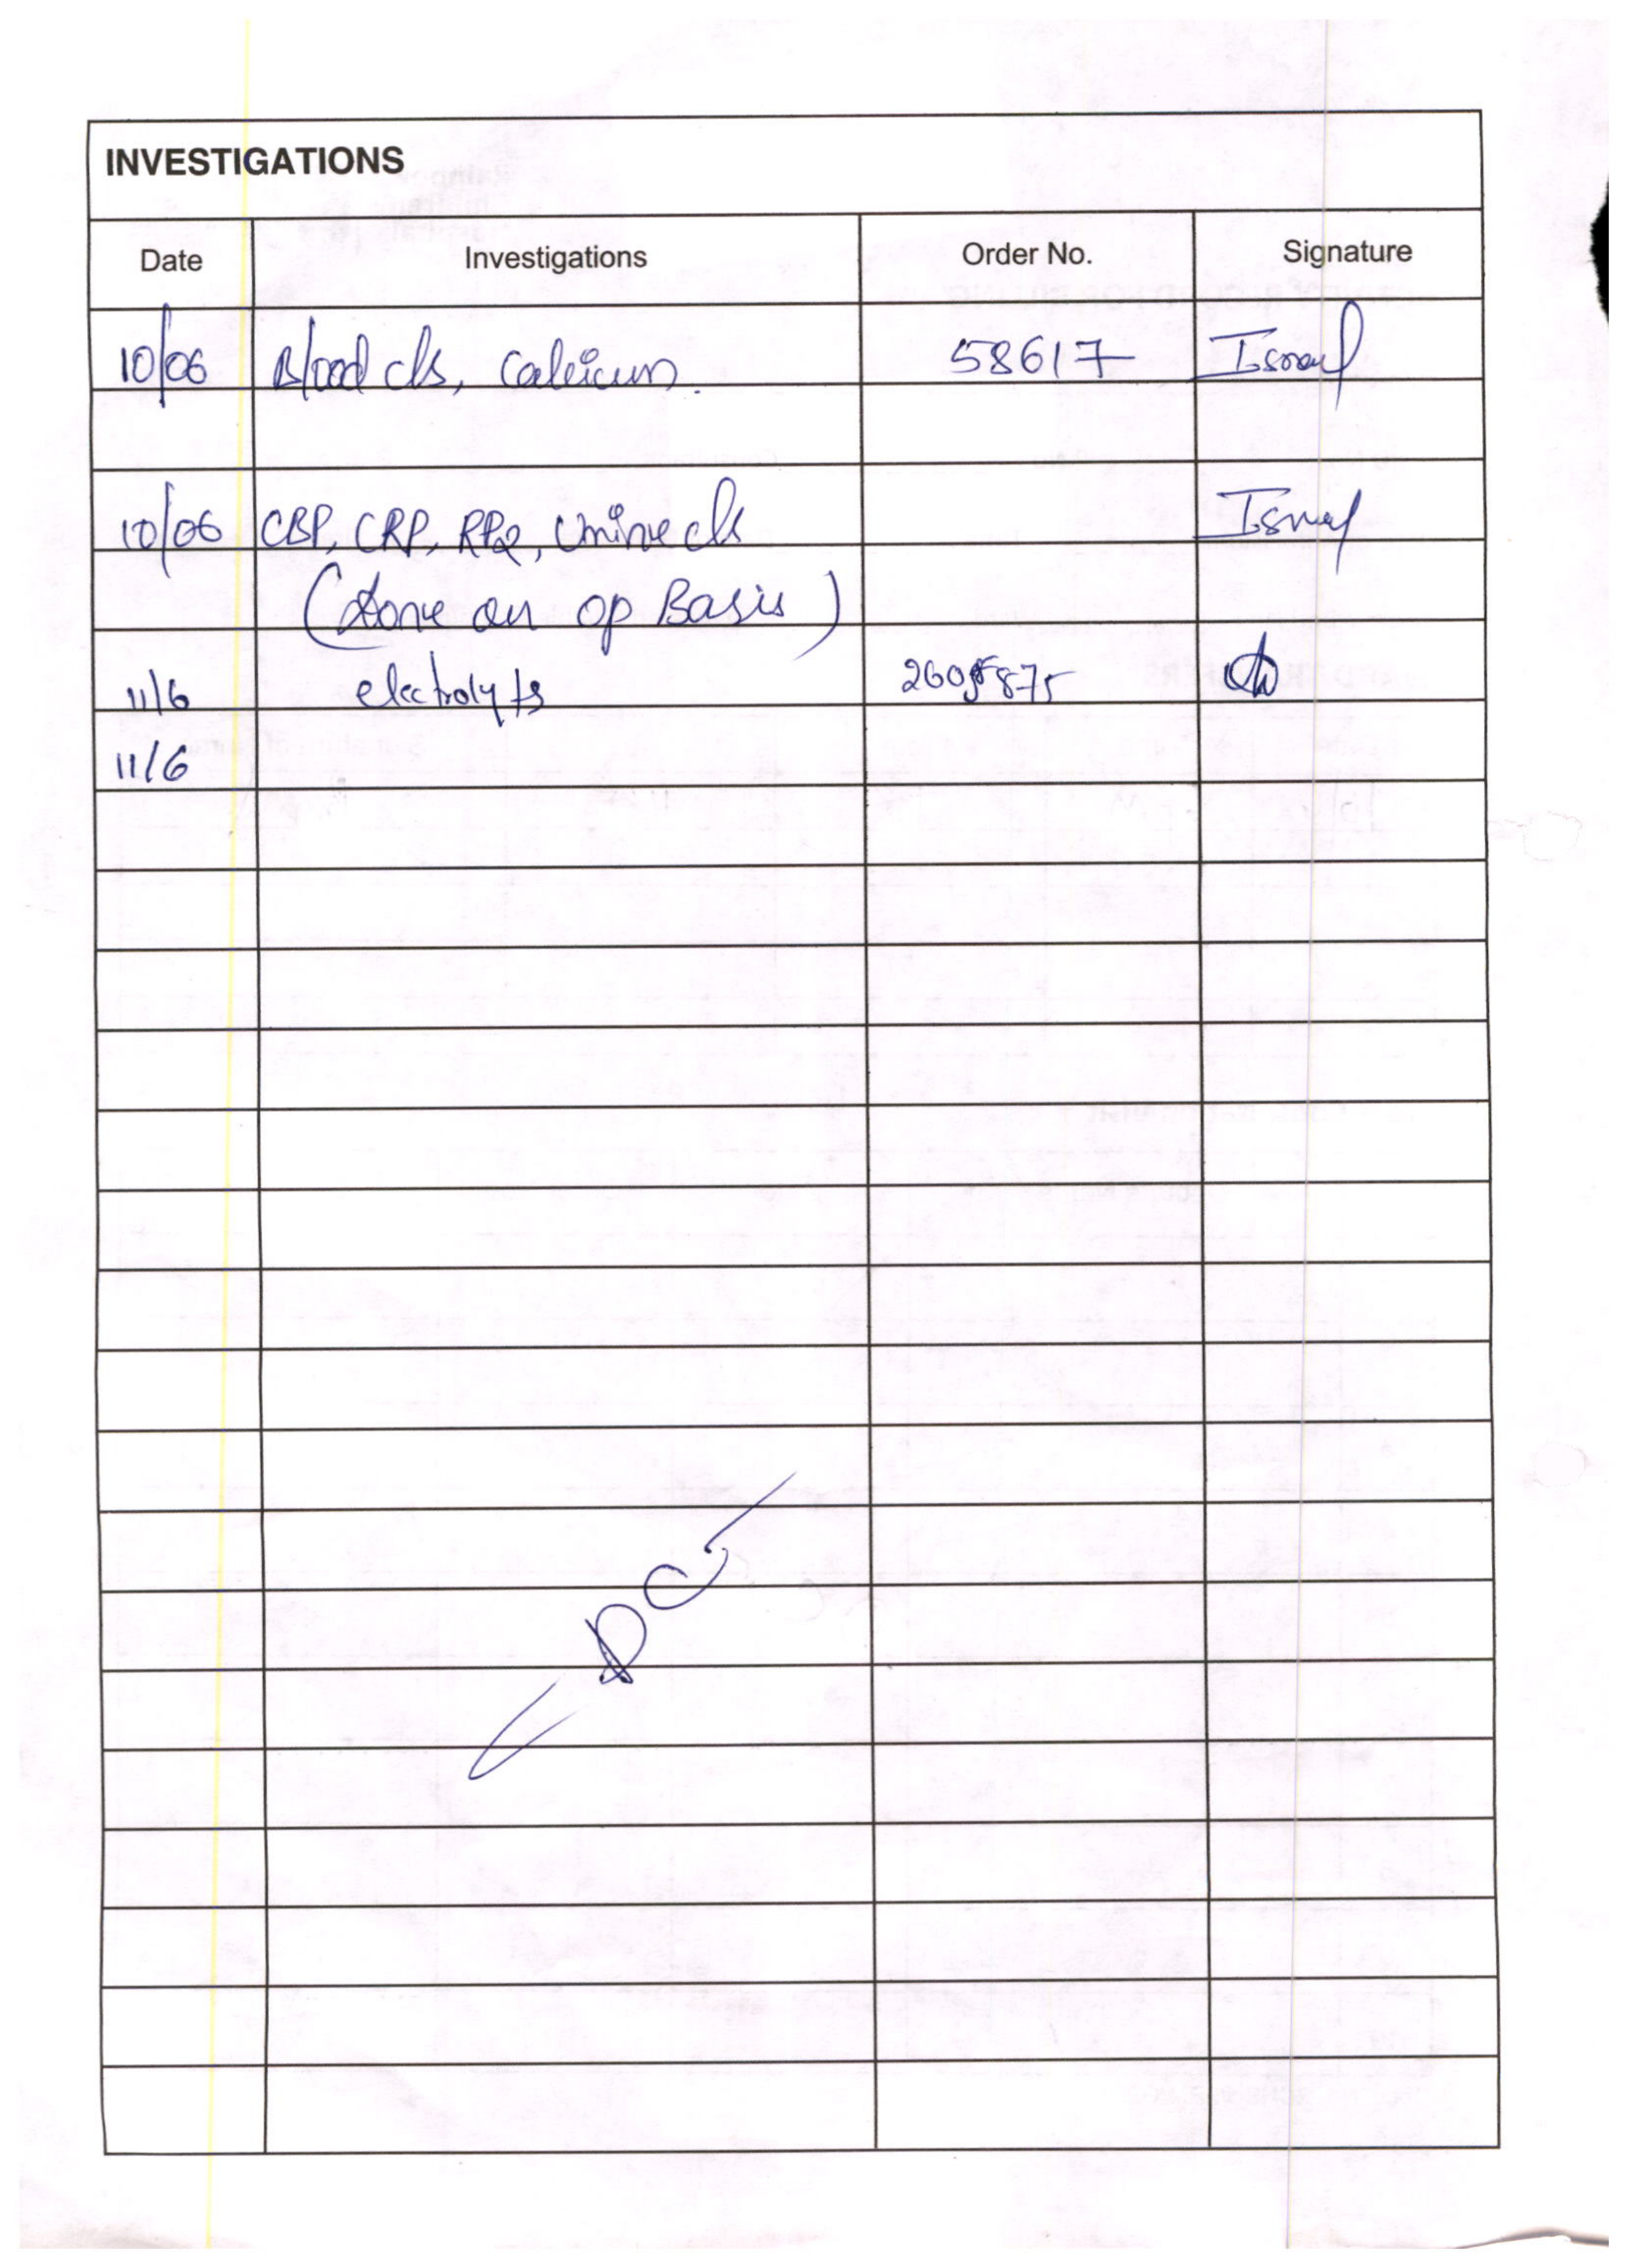 INVESTIGATIONS
Date Investigations Order No. Signature
10/06 Blood c/s, calcium. 58617
10/06 CBP, CRP, Urine c/s
(done on op Basis)
11/6 electrolyts
11/6
DC